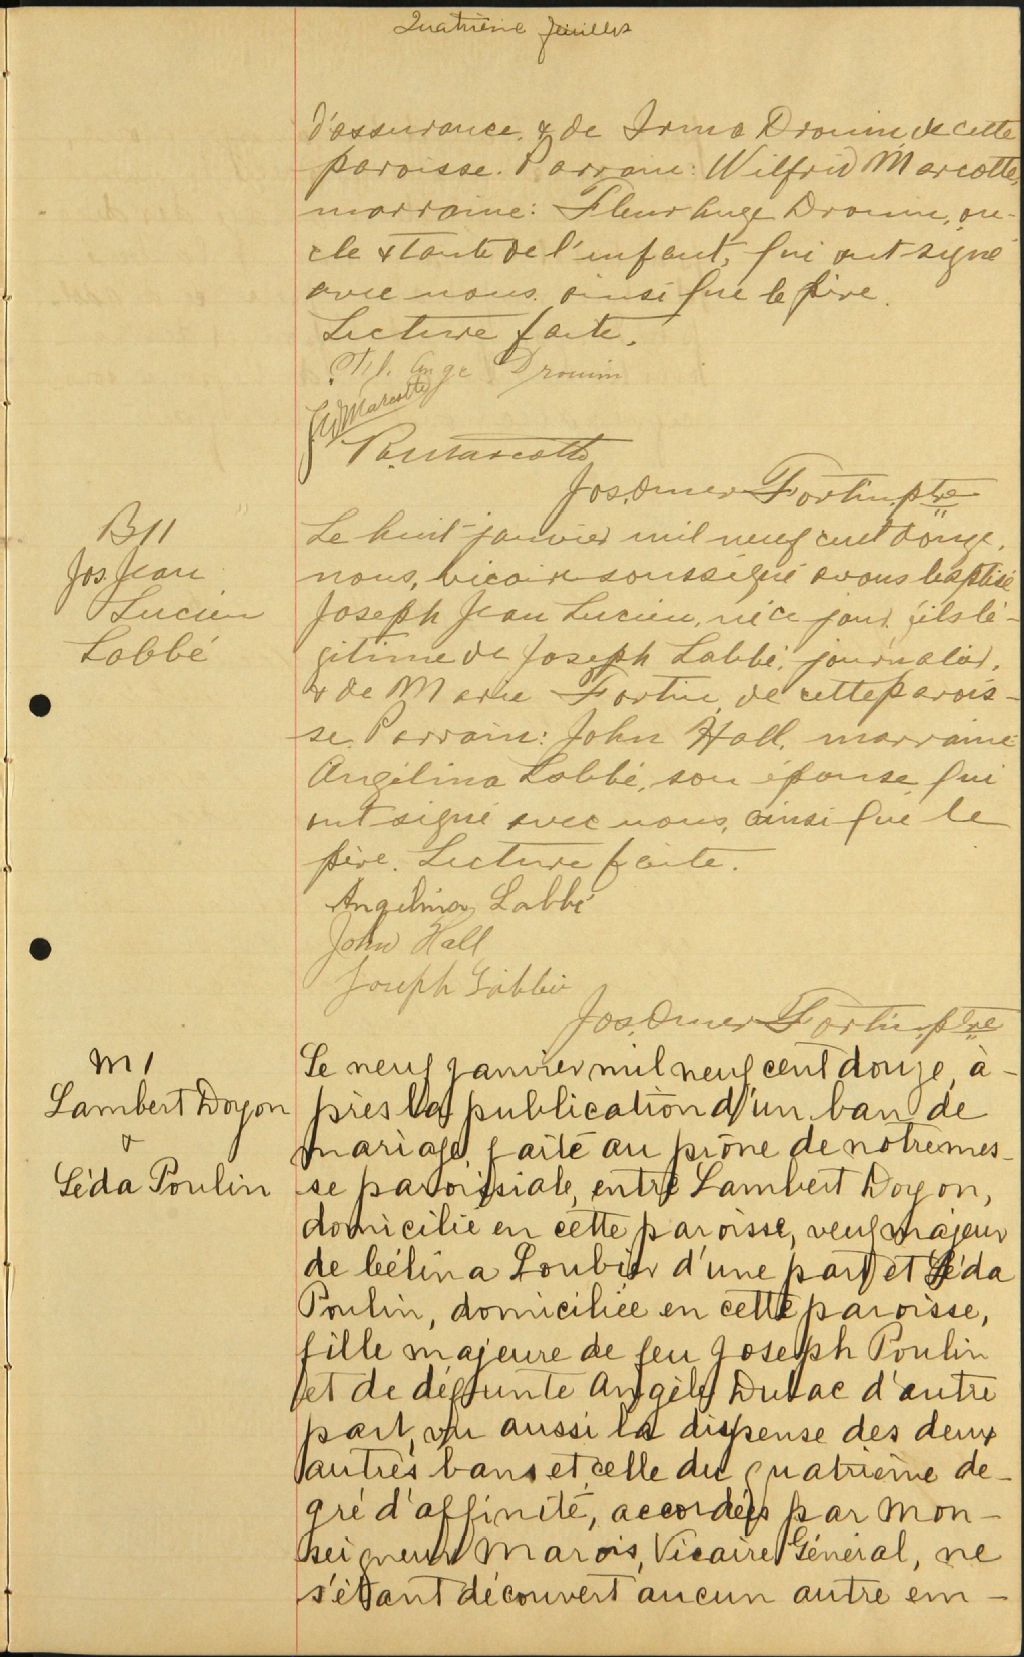 Quatrième feuillet
d'assurance, & de Irma Drouin, de cette
paroisse. Parrain: Wilfrid Marcotte,
marraine: Fleurange Drouin, on-
cle & tante de l'enfant, qui ont signé
avec nous ainsi que le père.
Lecture faite.
Fl. Ange Drouin
Marcotte
Marcotte
Jos. Omer Fortin, ptre
B 11
Jos. Jean
Lucien
Labbé
Le huit janvier mil neuf cent douze,
nous, vicaire soussigné avons baptisé
Joseph Jean Lucien, né ce jour, fils lé-
gitime de Joseph Labbé, journalier,
& de Marie Fortin, de cette parois-
se. Parrain: John Hall, marraine
Angélina Labbé, son épouse, qui
ont signé avec nous, ainsi que le
père. Lecture faite.
Angelina Labbé
John Hall
Joseph Labbé
Jos. Omer Fortin, ptre
M 1
Lambert Doyon
&
Léda Poulin
Le neuf janvier mil neuf cent douze, a-
près la publication d'un ban de
mariage, faite au prône de notre mes-
se paroissiale, entre Lambert Doyon,
domicilié en cette paroisse, veuf majeur
de Célina Loubier d'une part et Léda
Poulin, domiciliée en cette paroisse,
fille majeure de feu Joseph Poulin
et de défunte Angèle Dulac d'autre
part, vu aussi la dispense des deux
autres bans et celle du quatrième de-
gré d'affinité, accordées par Mon-
seigneur Marois, Vicaire Général, ne
s'étant découvert aucun autre em-